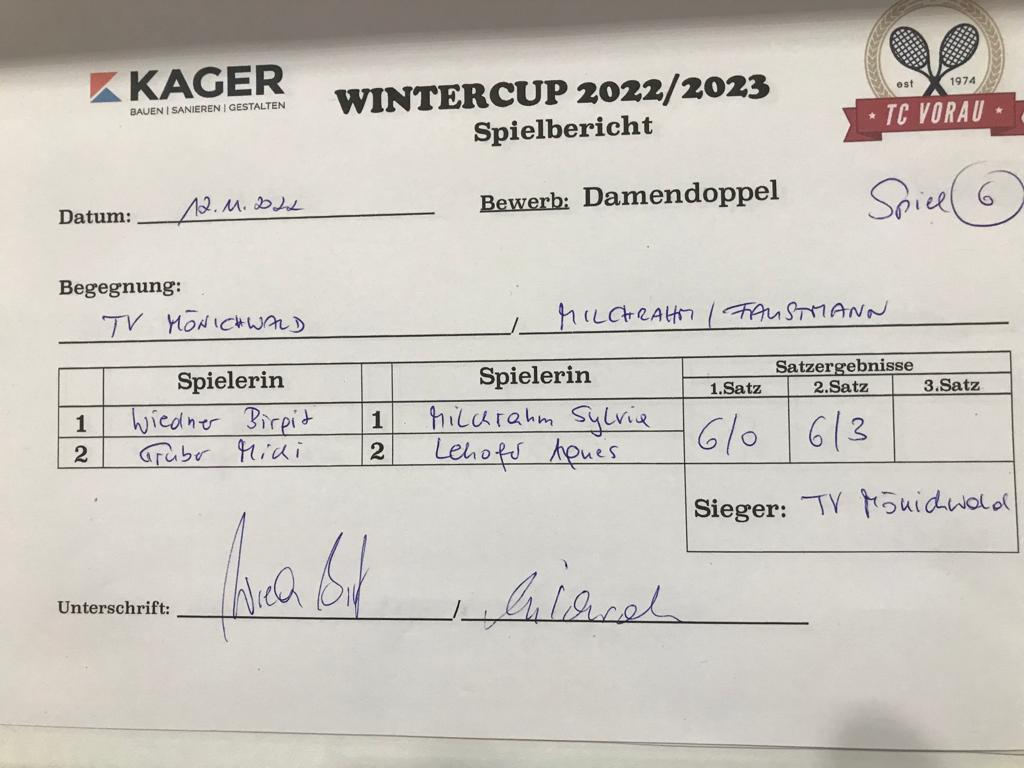 KAGER
BAUEN | SANIEREN | GESTALTEN
WINTERCUP 2022/2023
Spielbericht
est 1974
TC VORAU
Datum: 12.11.2022
Bewerb: Damendoppel
Spiel 6
Begegnung:
TV MÖNICHWALD / MILCHRAHM / FAUSTMANN
Spielerin Spielerin Satzergebnisse
1.Satz 2.Satz 3.Satz
1 Wiedner Birgit 1 Milchrahm Sylvia 6/0 6/3
2 Gruber Michi 2 Lehofer Agnes
Sieger: TV Mönichwald
Unterschrift: /